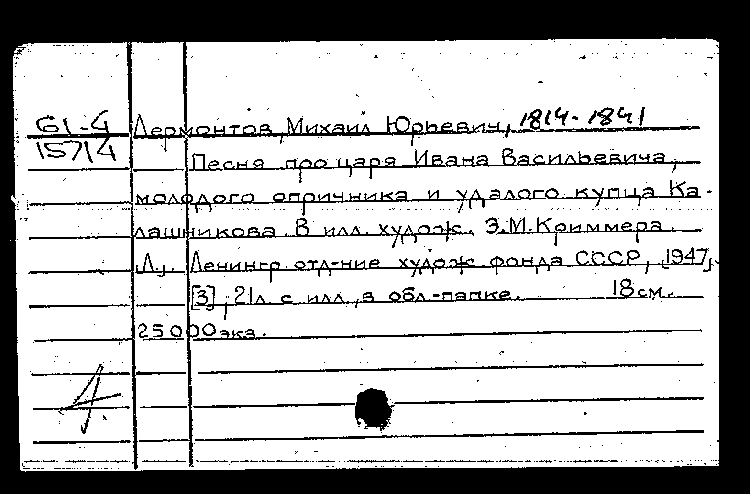 61-4
15714
Лермонтов, Михаил Юрьевич, 1814-1841
Песня про царя Ивана Васильевича,
молодого опричника и удалого купца Ка-
лашникова. В илл. худож. Э.М.Криммера.
Л., Ленингр отд-ние худож фонда СССР, 1947.
[3], 21л. с илл., в обл.-папке. 18 см.
25000 экз.
4.